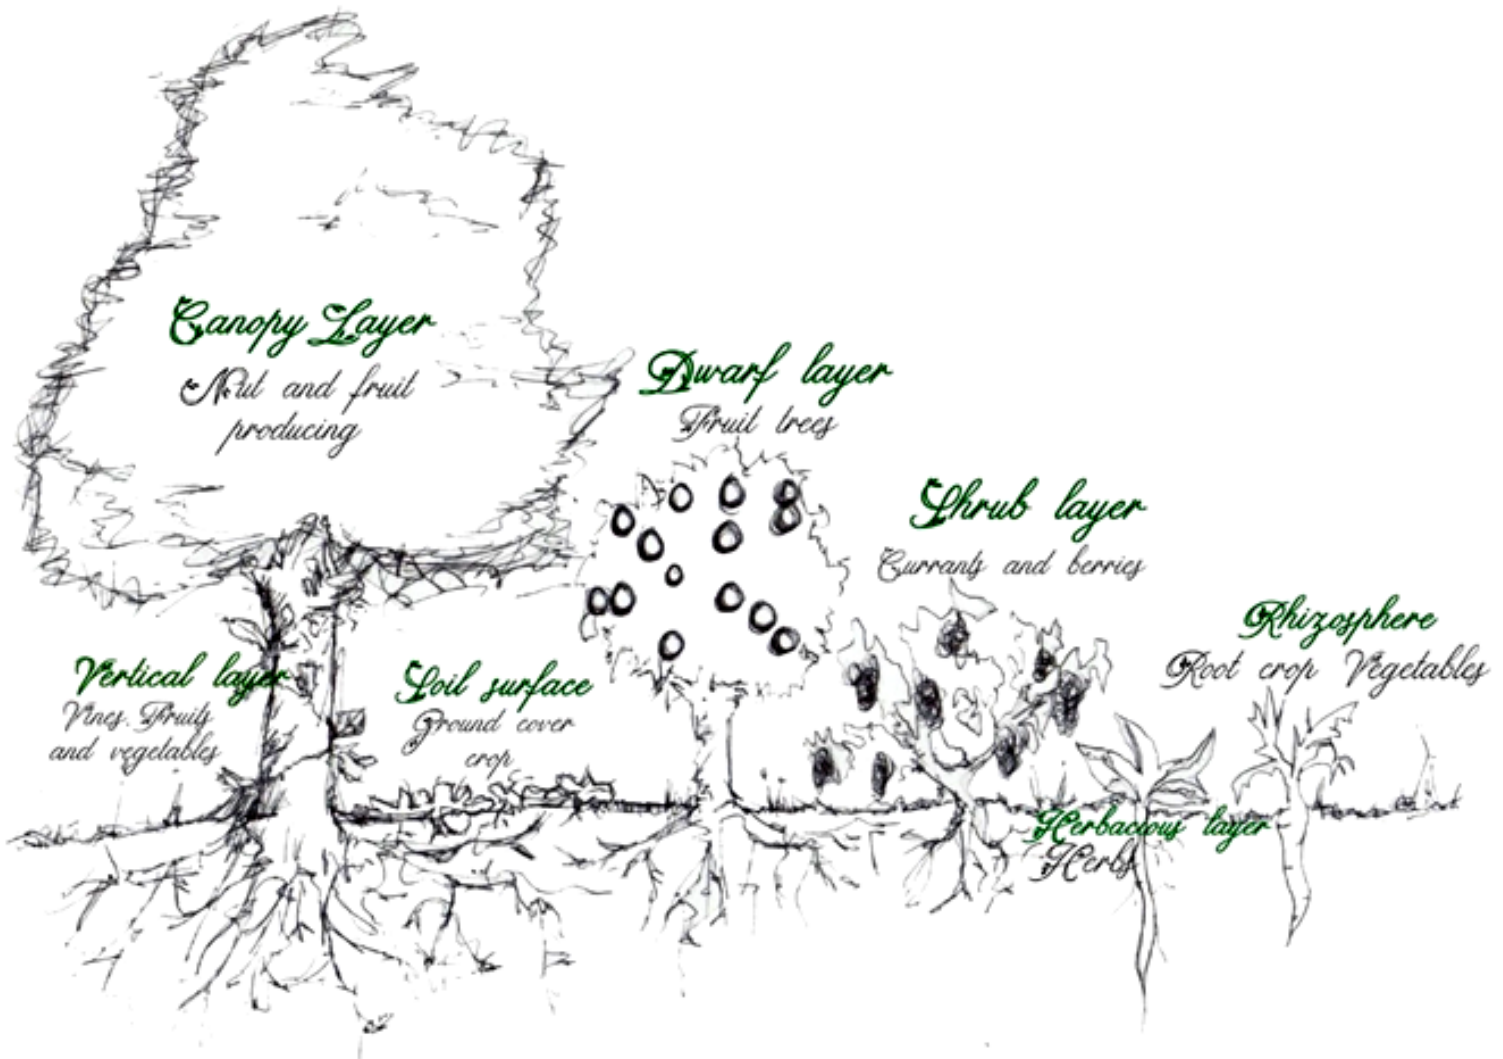 Canopy Layer
Nut and fruit
producing
Dwarf layer
Fruit trees
Shrub layer
Currants and berries
Rhizosphere
Root crop Vegetables
Vertical layer
Vines. Fruits
and vegetables
Soil surface
Ground cover
crop
Herbacious layer
Herbs